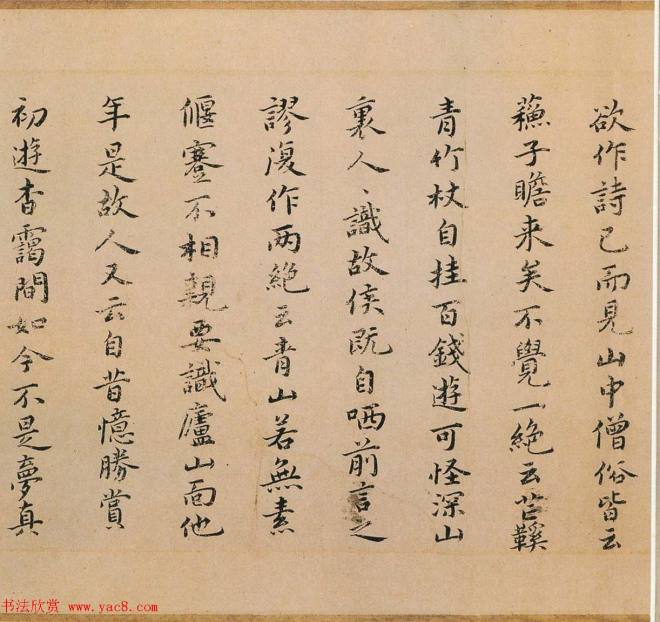 欲作詩已而見山中僧俗皆云
蘓子瞻来矣不覺一絶云芒鞵
青竹杖自挂百錢遊可怪深山
裏人〻識故侯既自哂前言之
謬復作两絶云青山若無素
偃蹇不相親要識廬山面他
年是故人又云自昔憶勝賞
初遊杳靄間如今不是夢真
书法欣赏 www.yac8.com